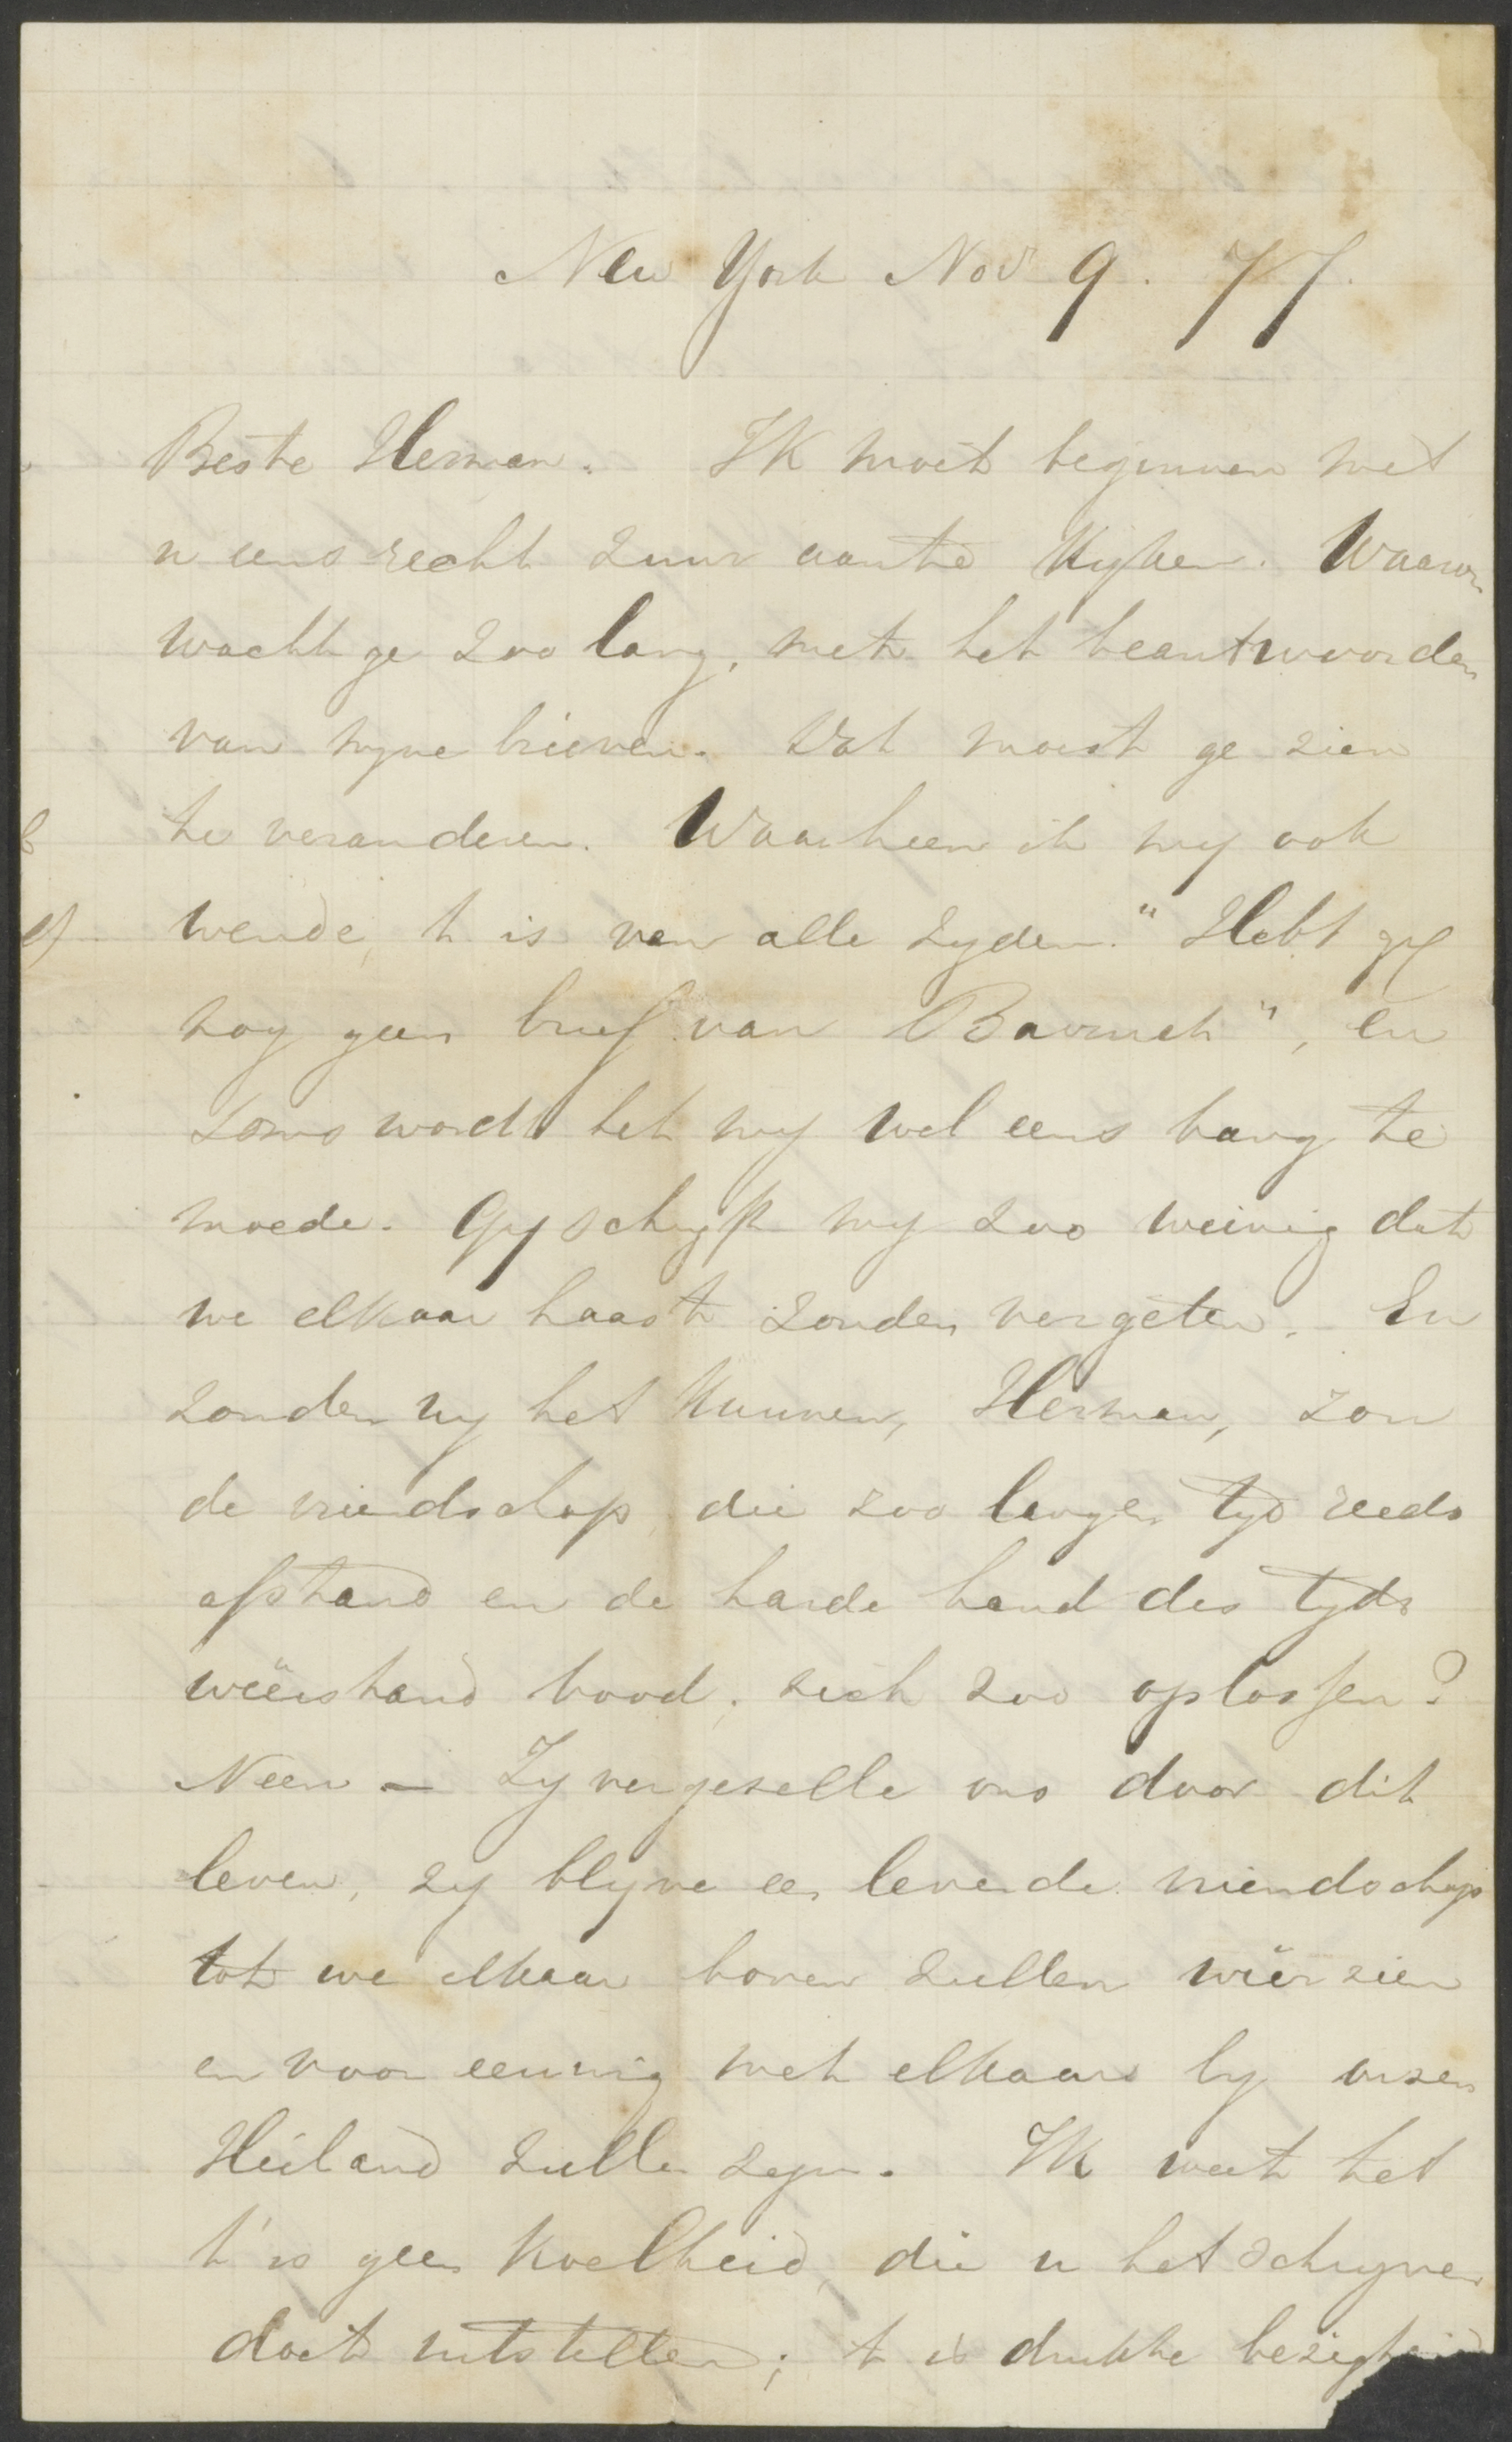 New York Nov 9. 77.
Beste Herman. IK moet beginnen met
u eens recht zuur aan te Kyken. Waarom
wacht ge zoo lang, met het beantwoorden
van myne brieven. Dat moest ge zien
te veranderen. Waarheen ik my ook
wende, t is van alle zyden. "Hebt gy
nog geen brief van Bavinck", en
soms wordt het my wel eens bang te
moede. Gy schryft my zoo weinig dat
we elkaar haast zouden vergeten. En
zouden wy het Kunnen, Herman, zou
de vriendschap, die zoo langen tyd reeds
afstand en de harde hand des tyds
weêrstand bood, zich zoo oplossen?
Neen — Zy vergeselle ons door dit
leven, zy blyve een levende vriendschap
tot we elkaar boven zullen wêer zien
en voor eeuwig met elkaar by onzen
Heiland zullen zyn. IK weet het
t'is geen Koelheid, die u het schryven
doet uitstellen; t is drukke bezigheid